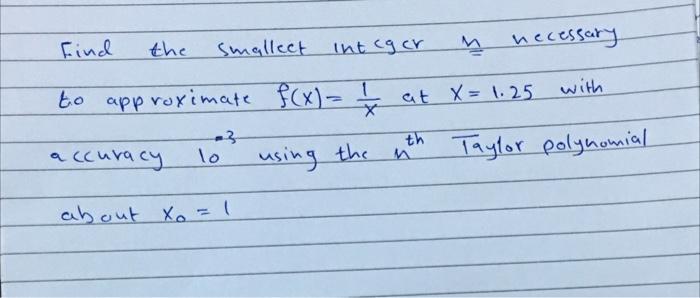 Find the smallest integer n necessary
to approximate f(x) = 1/x at x = 1.25 with
accuracy 10^-3 using the n^th Taylor polynomial
about x₀ = 1